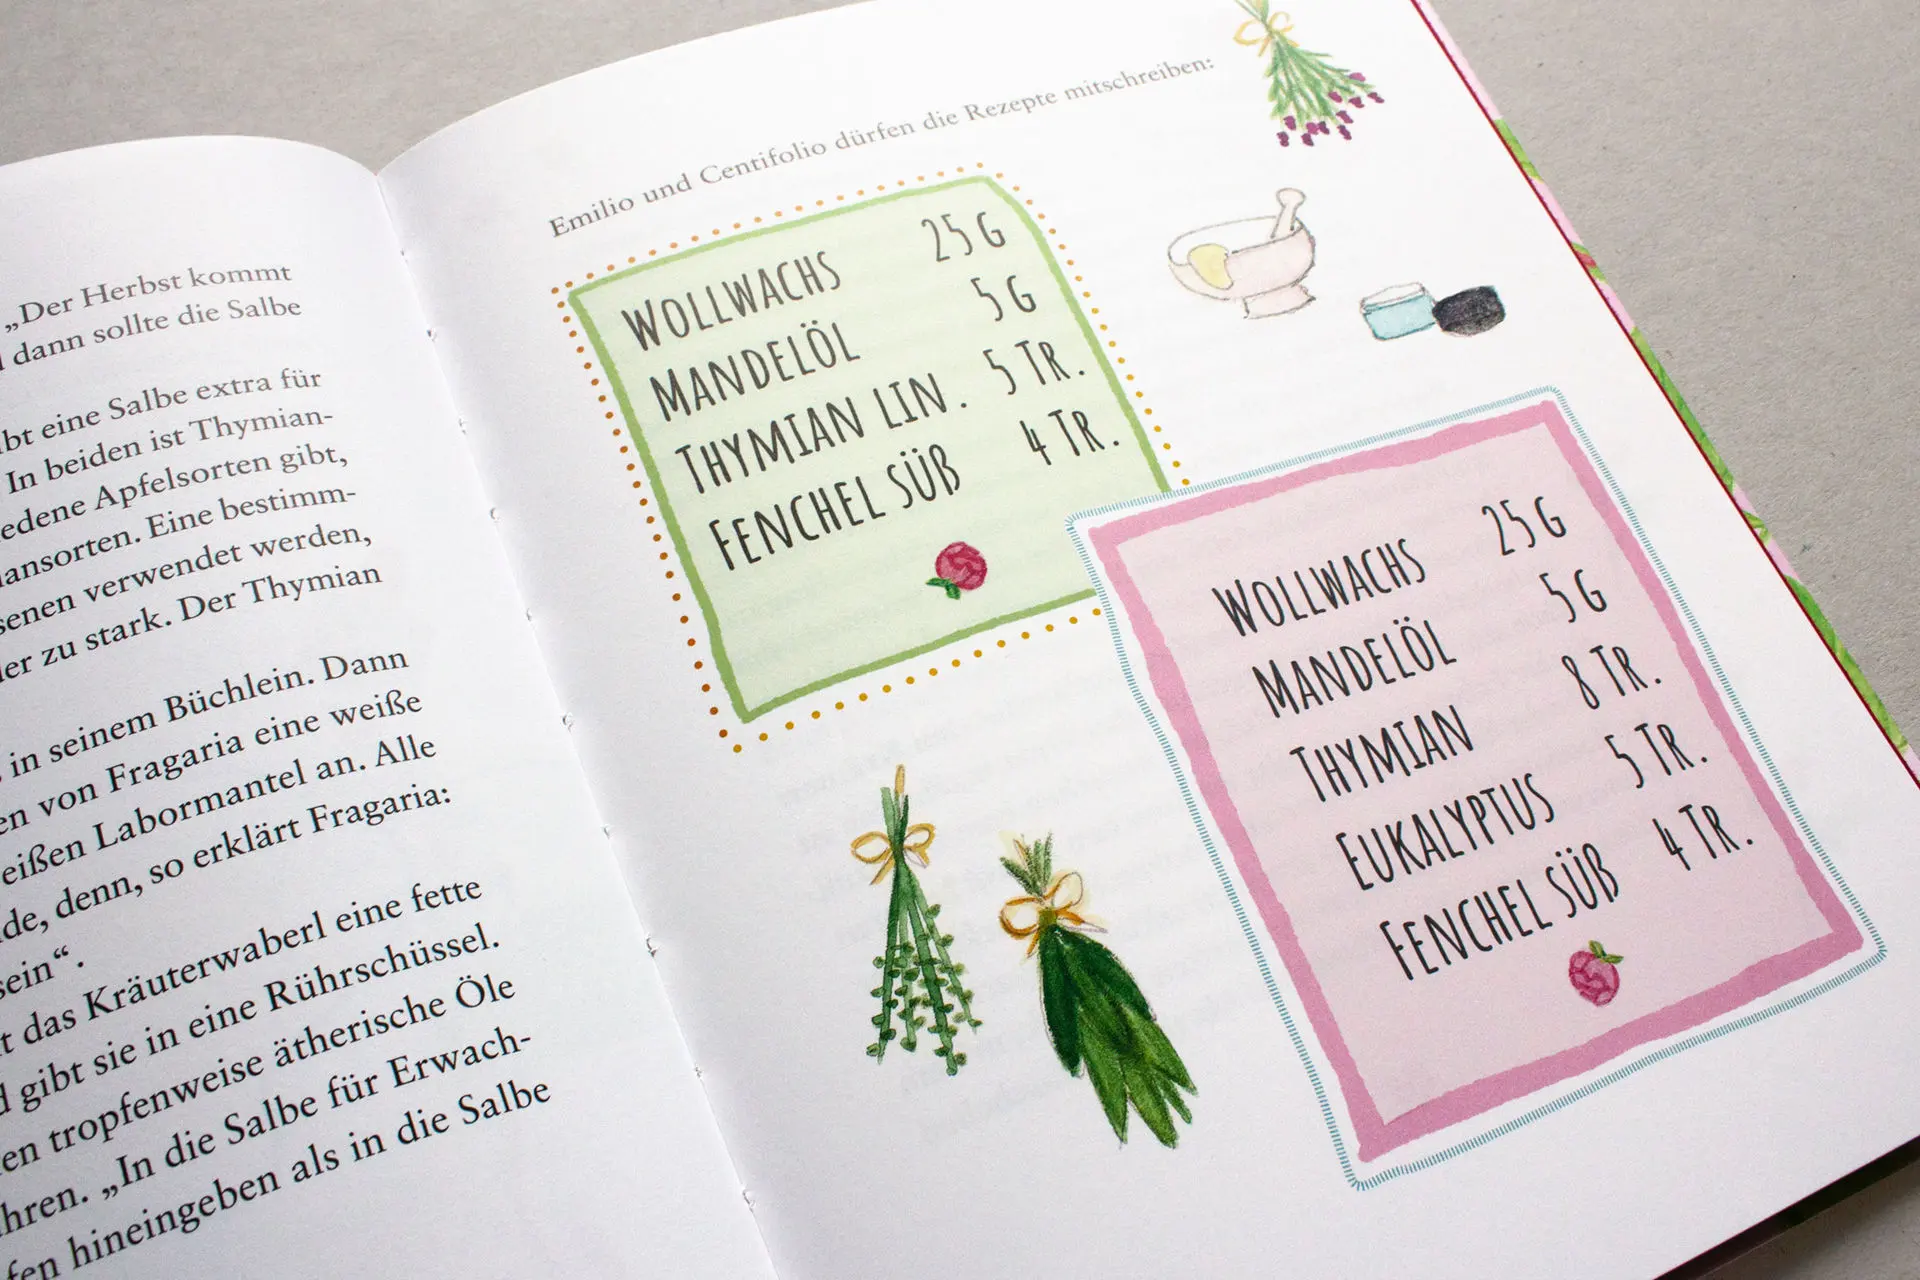 „Der Herbst kommt
dann sollte die Salbe
eine Salbe extra für
In beiden ist Thymian-
Apfelsorten gibt,
Eine bestimm-
verwendet werden,
zu stark. Der Thymian
in seinem Büchlein. Dann
von Fragaria eine weiße
Labormantel an. Alle
denn, so erklärt Fragaria:
sein“.
das Kräuterwaberl eine fette
gibt sie in eine Rührschüssel.
tropfenweise ätherische Öle
„In die Salbe für Erwach-
hineingeben als in die Salbe
Emilio und Centifolio dürfen die Rezepte mitschreiben:
WOLLWACHS 25 G
MANDELÖL 5 G
THYMIAN LIN. 5 TR.
FENCHEL SÜß 4 TR.
WOLLWACHS 25 G
MANDELÖL 5 G
THYMIAN 8 TR.
EUKALYPTUS 5 TR.
FENCHEL SÜß 4 TR.